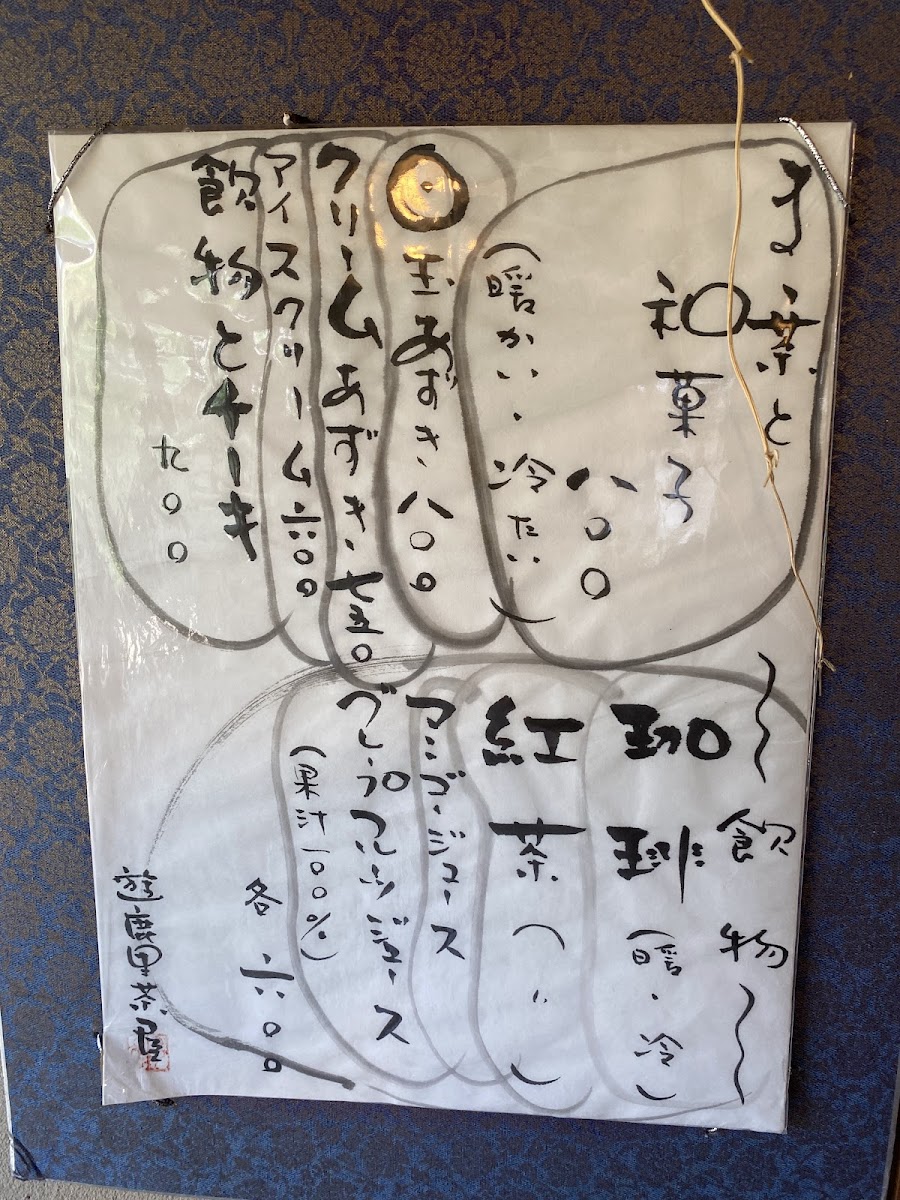 ま茶と
和菓子
八〇〇
(暖かい・冷たい)
白玉あずき 八〇〇
クリームあずき 七五〇
アイスクリーム 六〇〇
飲物とケーキ
九〇〇
〜飲物〜
珈琲(暖・冷)
紅茶(〃)
マンゴージュース
グレープフルーツジュース
(果汁一〇〇%)
各六〇〇
遊鹿里茶屋